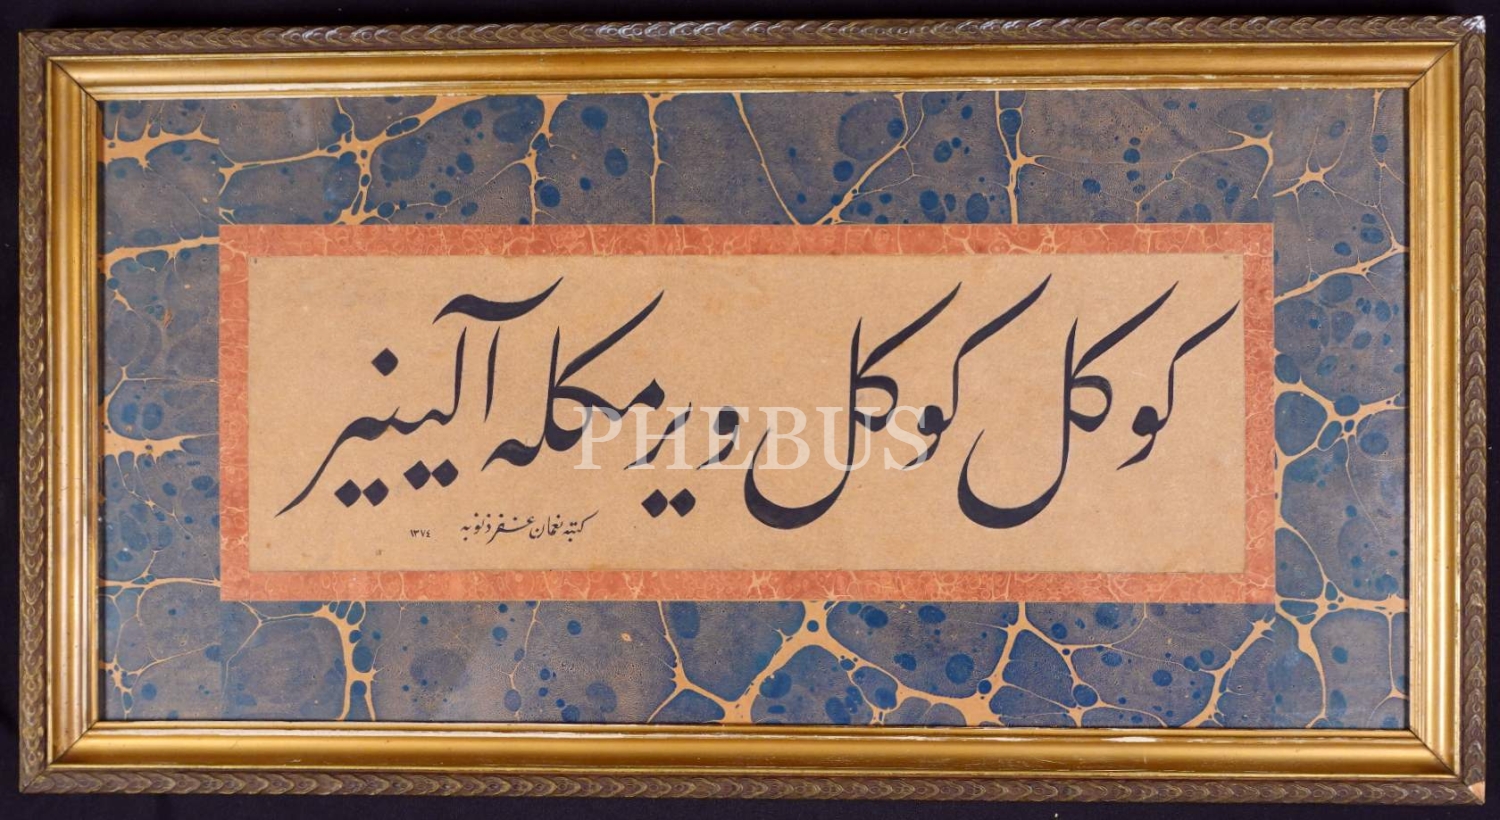 كوكل كوكل ويرمكله آلينير
كتبه نعمان غفر ذنوبه
١٣٧٤
PHEBUS